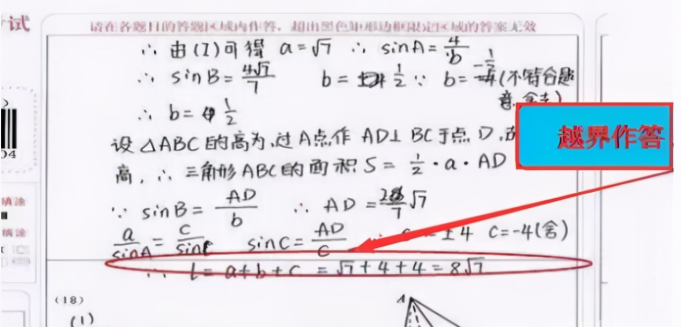 考试
请在各题目的答题区域内作答，超出黑色矩形边框限定区域的答案无效
∴ 由(1)可得 a=√7 ∴ sinA=4/b
∴ sinB=4√7/7 b= 1/2 ∵ b=-1/2 (不符合题意,舍去)
∴ b= 1/2
设△ABC的高为,过A点作 AD⊥BC于点D,
高, ∴ 三角形ABC的面积 S = 1/2·a·AD
越界作答
∵ sinB = AD/b ∴ AD = √7
a/sinA = c/sinC sinC = AD/c ±4 c=-4(舍)
∴ l=a+b+c =√7+4+4=8√7
04
填涂
填涂
(18)
(1)
A